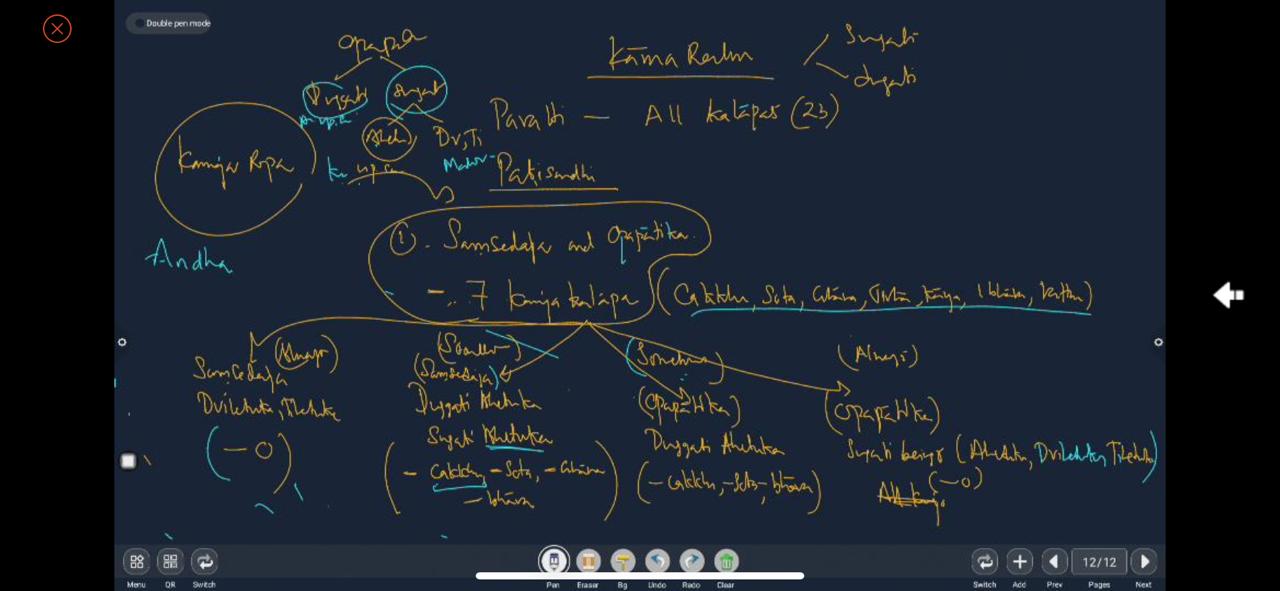 Double pen mode
Kāma Realm
Sugati
dugati
Opapa
Duggati
Sugati
Dv, Ti
Pavatti — All kalāpas (23)
Kammaja Rūpa
Paṭisandhi
① - Saṃsedaja and Opapātika
- 7 kamaja kalāpa (Cakkhu, Sota, Ghāna, Jivhā, Kāya, bhāva, Vatthu)
Andha
(Always)
Saṃsedaja
Dvihetuka, Tihetuka
(- 0)
(Saṃsedaja)
Duggati Ahetuka
Sugati Ahetuka
(- Cakkhu - Sota, - Ghāna
- bhāva)
(Sometimes)
(Opapātika)
Duggati Ahetuka
(- Cakkhu, - Sota - bhāva)
(Always)
(Opapātika)
Sugati beings (Ahetuka, Dvihetuka, Tihetuka)
(- 0)
Menu
QR
Switch
Pen
Eraser
Bg
Undo
Redo
Clear
Switch
Add
Prev
12/12
Pages
Next